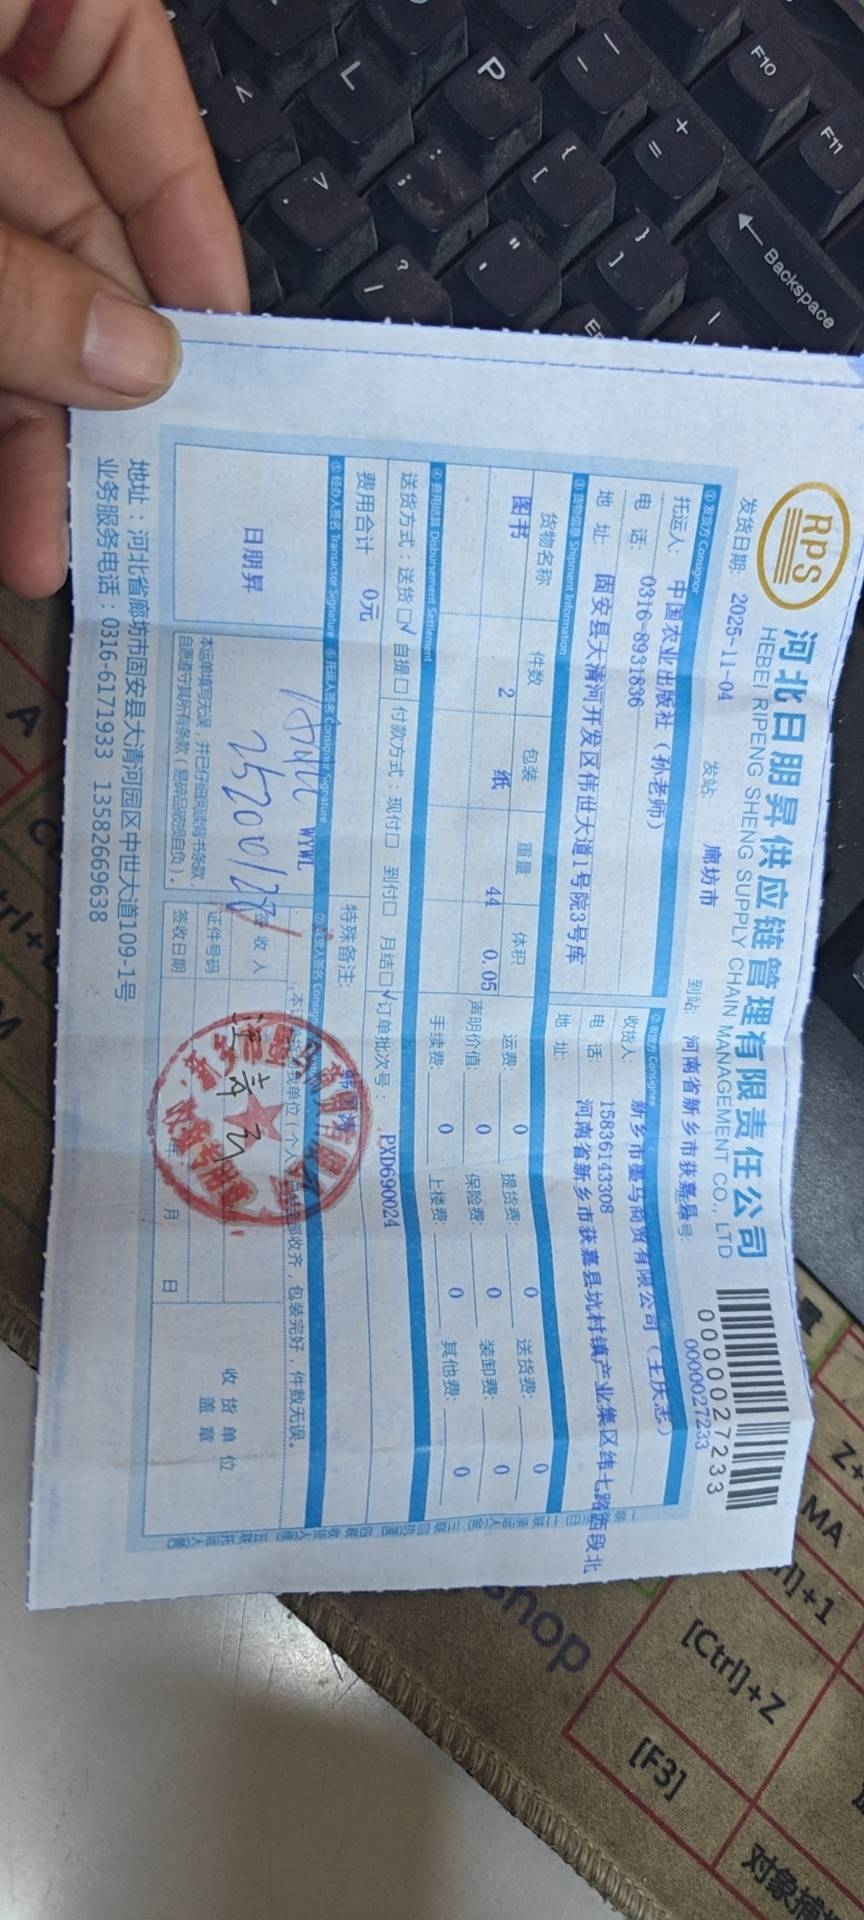 RPS
河北日朋昇供应链管理有限责任公司
HEBEI RIPENG SHENG SUPPLY CHAIN MANAGEMENT CO., LTD
0000027233
发货日期: 2025-11-04 发站: 廊坊市 到站: 河南省新乡市获嘉县 号: 0000027233
①发货方 Consignor ②收货方 Consignee
托运人: 中国农业出版社（孙老师）
电 话: 0316-8931836
地 址: 固安县大清河开发区伟世大道1号院3号库
收货人: 新乡市 马商贸有限公司（王庆志）
电 话: 15836143308
地 址: 河南省新乡市获嘉县坑村镇产业集区纬七路西段北
③货物信息 Shipment Information
货物名称 件数 包装 重量 体积
图书 2 纸 44 0.05
运费: 0 提货费: 0 送货费: 0
声明价值: 0 保险费: 0 装卸费: 0
手续费: 0 上楼费: 0 其他费: 0
④费用结算 Disbursement Settlement
送货方式：送货☑ 自提□ 付款方式：现付□ 到付□ 月结☑ 订单批次号： PXD690024
费用合计 0元 特殊备注:
⑤经办人签名 Transactor Signature ⑥托运人签名 Consignor Signature
日朋昇
WYWL
本运单填写无误，并已仔细阅读背书条款，
自愿遵守其所有条款（易碎品破损自负）。
包装完好，件数无误。
签收人
证件号码
签收日期 年 月 日
收货单位
盖章
地址：河北省廊坊市固安县大清河园区中世大道109-1号
业务服务电话：0316-6171933 13582669638
<
L
P
F10
F11
>
.
:
;
{
[
+
=
?
/
"
'
}
]
Backspace
A
M
shop
Z+
MA
[Ctrl]+Z
[F3]
对象捕